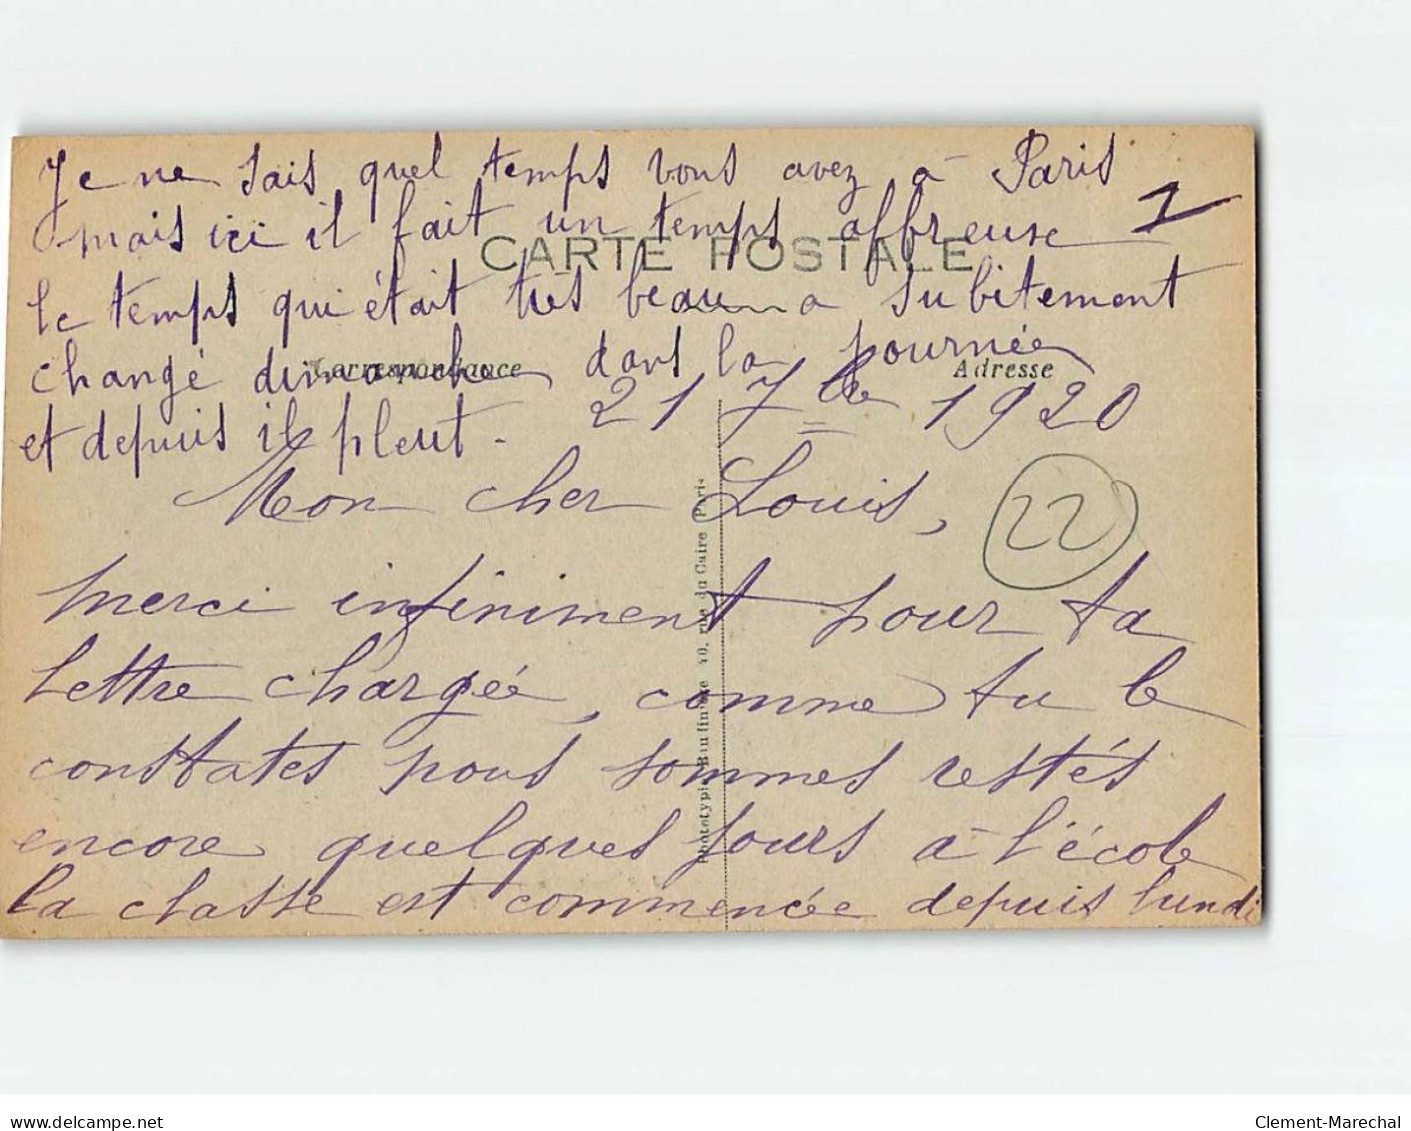 Je ne sais quel temps vous avez à Paris
mais ici il fait un temps affreuse
1
CARTE POSTALE
le temps qui était très beau a subitement
changé dimanche dans la journée
Correspondance
Adresse
et depuis il pleut -
21 7bre 1920
Mon cher Louis,
22
merci infiniment pour ta
lettre chargée, comme tu le
constates nous sommes restés
encore quelques jours à l'école
la classe est commencée depuis lundi
Phototypie Baudinière 40, rue du Caire Paris
Clement-Marechal